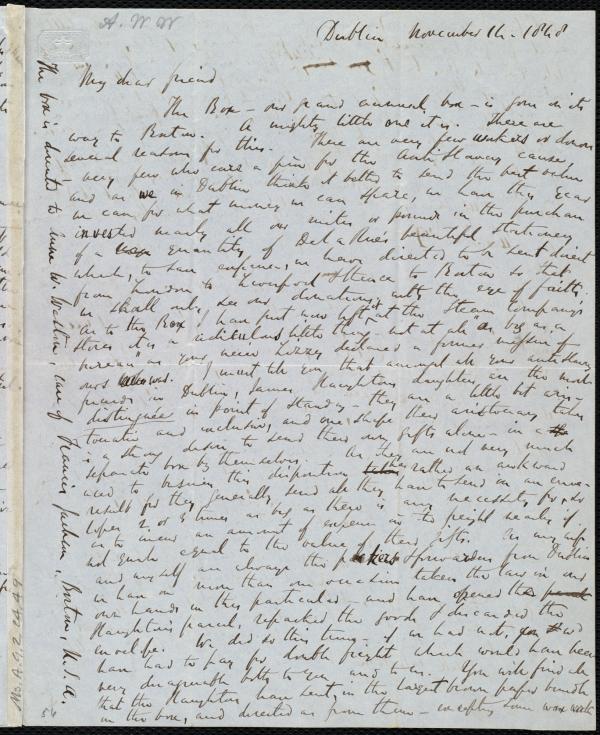 A. W. W
Dublin November 16 - 1848
My dear friend
The Box - our grand annual box - is gone on its
way to Boston. A mighty little one it is. There are
several reasons for this. There are very few workers or donors
a very few who care a pin for the Anti Slavery cause,
and as we in Dublin think it better to send the best value
we can for what money we can spare, we have this year
invested nearly all our mites or pounds in the purchase
of a quantity of De la Rue's beautiful stationery
which, to save expense, we have directed to be sent direct
from London to Liverpool & thence to Boston so that
we shall only see our donations with the eye of faith.
As to the Box I have just now left it at the Steam Company's
stores it is a ridiculous little thing - not at all as big as a
bureau as your niece Lizzy declared a former meeting of
ours was. I must tell you that amongst all your antislavery
friends in Dublin, James Haughton's daughters are the most
distinguées in point of standing - they are a little bit aris-
tocratic and exclusive, and one shape their aristocracy takes
is a strong desire to send their own gifts alone - in a
separate box by themselves. As they are not very much
used to business this disposition has rather an awkward
result for they generally send all they have to send in an enve-
lope 2 or 3 times as big as there is any necessity for, so
as to incur an amount of expense in the freight nearly if
not quite equal to the value of their gifts. As my wife
and myself are always the packers & forwarders from Dublin
we have on more than one occasion taken the law in our
own hands in this particular and have opened the
Haughton's parcel, repacked the goods & discarded the
envelope. We did so this time - if we had not, we'd
have had to pay for double freight which would have been
very disagreeable both to you and to us. You will find all
that the Haughtons have sent, in the largest brown paper bundle
in the box, and directed as from them - excepting some wax work
The box is directed to Anne W. Weston, care of Francis Jackson, Boston, U.S.A.